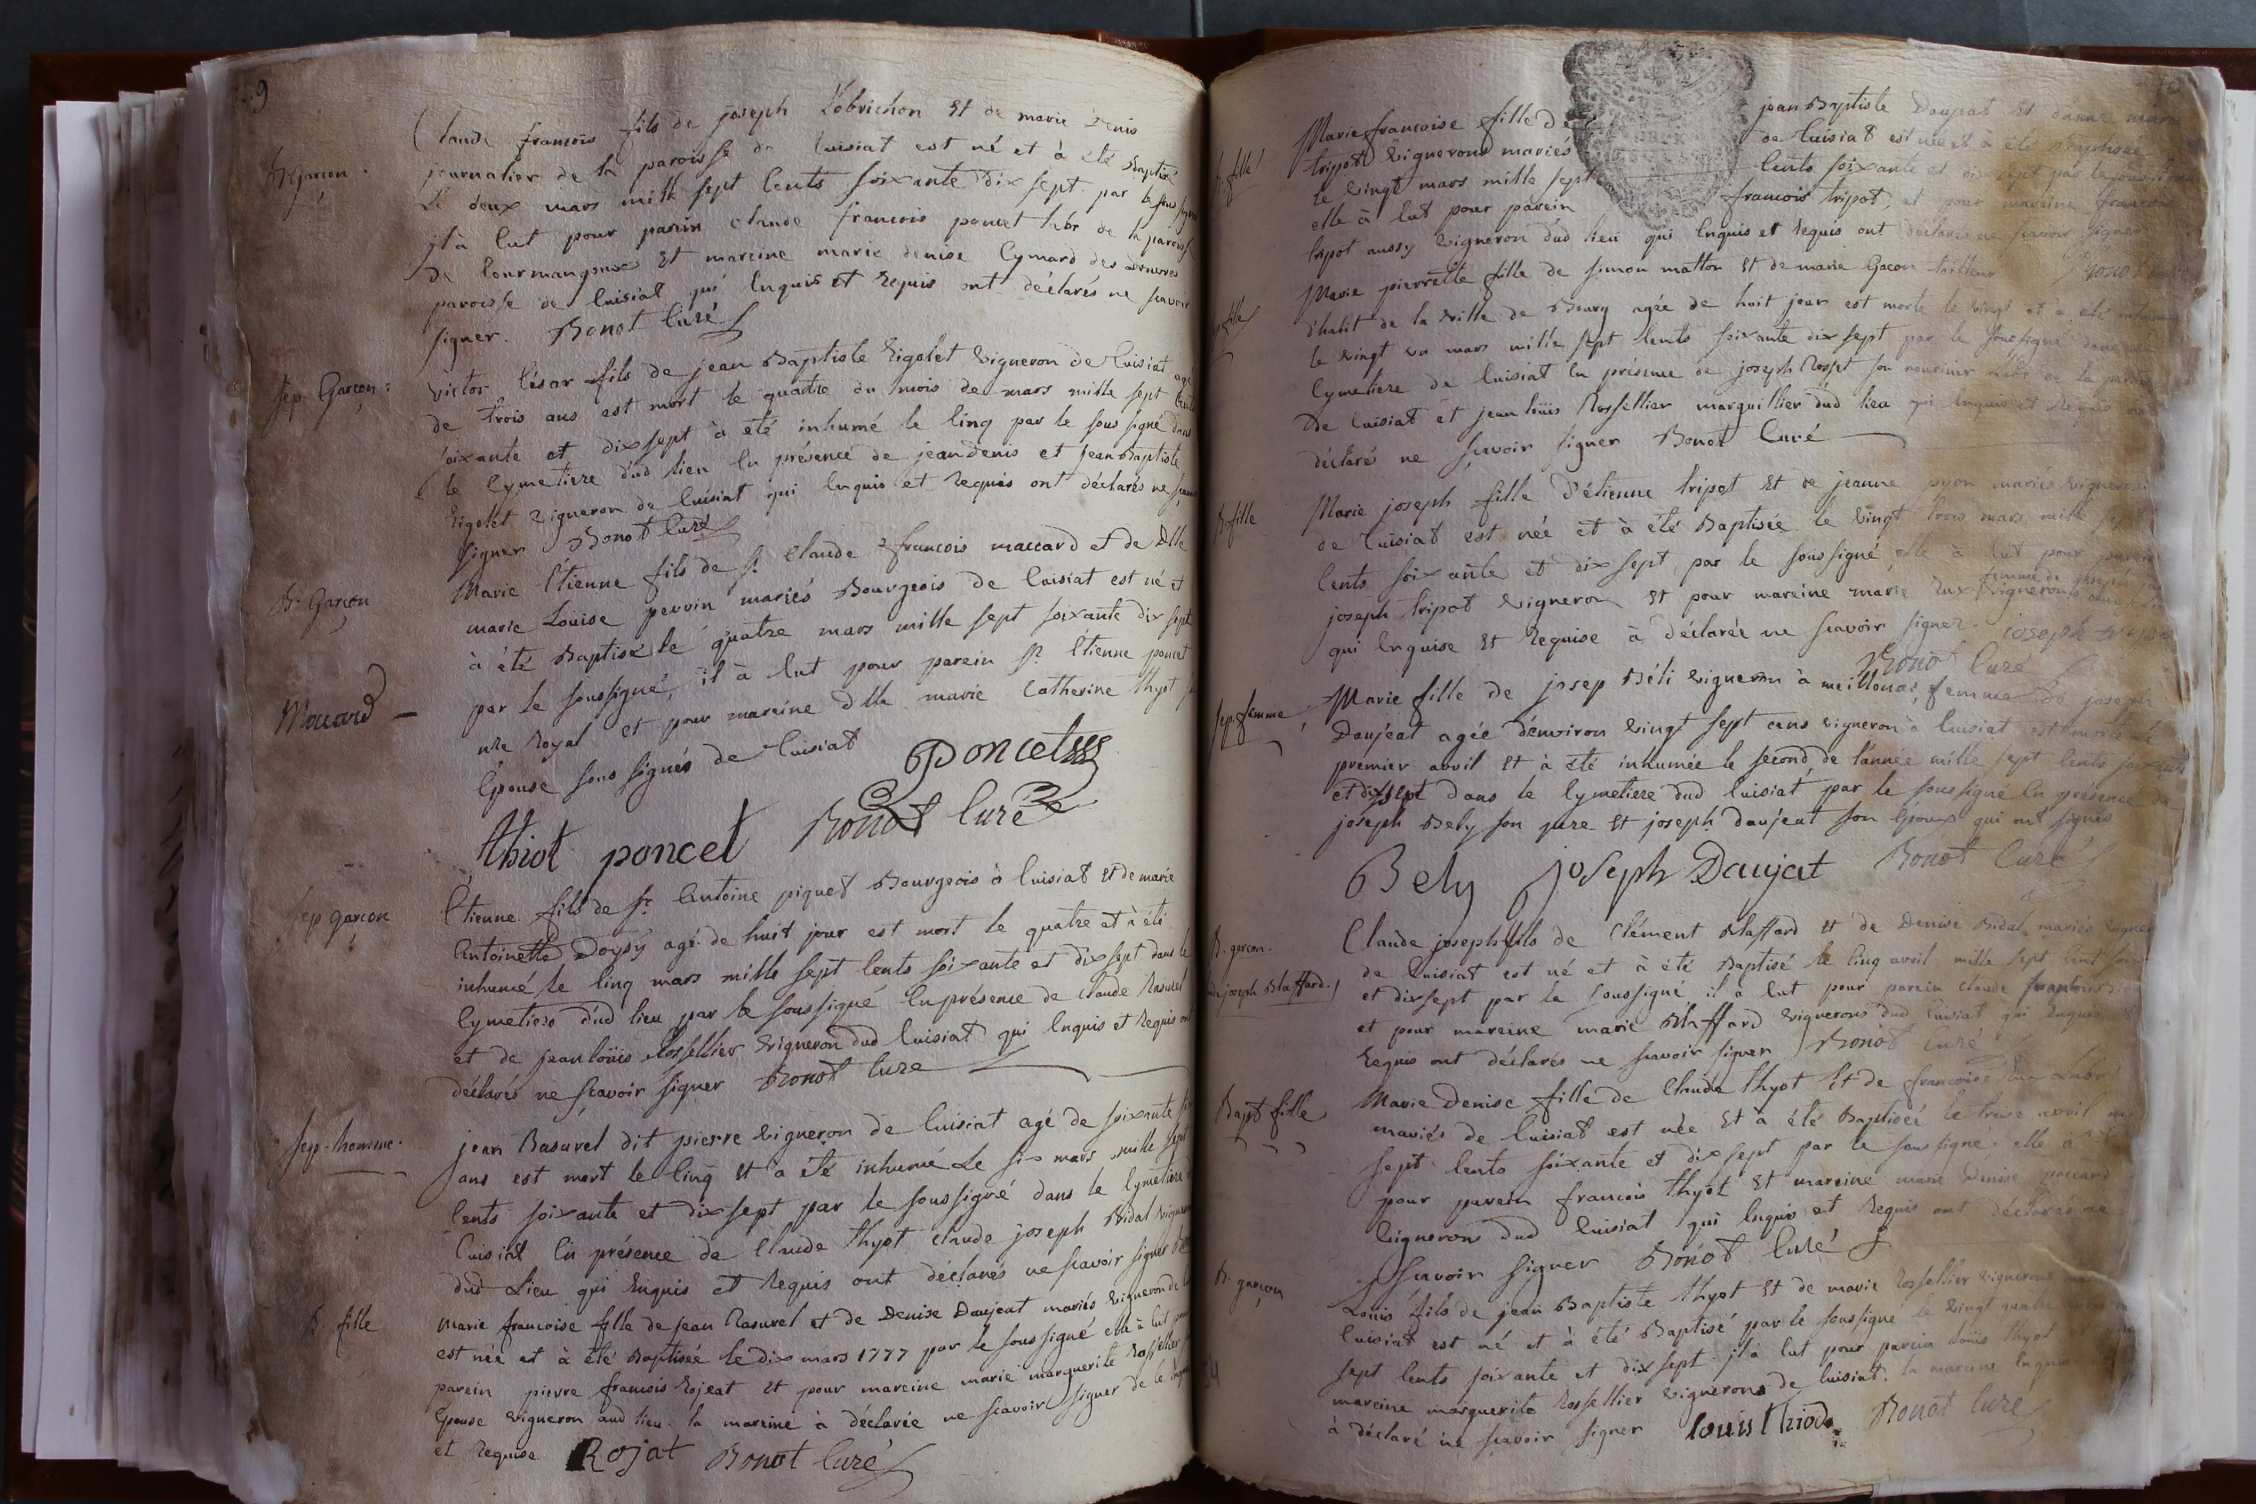 9
B. Garcon.
Claude francois fils de joseph Lobrichon Et de marie Denis
journalier de la paroisse de Cuisiat est né et à été Baptisé
Le deux mars mille sept Cents soixante dix sept par le
jl à Eut pour parin claude francois poncet labr de la paroisse
De Courmangoux Et mareine marie denise Cymard des
paroisse de Cuisiat qui Enquis Et Requis ont déclarés ne scavoir
signer. Bonot Curé
Sep. Garcon:
Victor César fils de jean Baptiste Rigolet vigneron de Cuisiat agé
de trois ans est mort le quatre du mois de mars mille sept Cents
soixante et dixsept à eté inhumé le Cinq par le sous signé dans
le Cymetiere dud lieu En présence de jean denis et jean Baptiste
Rigolet vigneron de Cuisiat qui Enquis et Requis ont déclarés ne
signer Bonot Curé
B. Garcon
Maccard
Marie Etienne fils de Sr. Claude francois maccard et de Dlle
marie Loüise perrin mariés Bourgeois de Cuisiat est né et
à été Baptisé le quatre mars mille sept soixante dix sept
par le soussigné, il à Eut pour parein Sr. Etienne poncet
nre Royal et pour mareine dlle marie Catherine thyot
Epouse sous signés de Cuisiat Poncet
thiot poncet Bonot Curé
Sep garcon
Etienne fils de Sr. Antoine piquet Bourgeois à Cuisiat Et de marie
Antoinette agé de huit jour est mort le quatre et à été
inhumé le Cinq mars mille sept Cents soixante et dix sept dans le
Cymetiere dud lieu par le soussigné En présence de Claude Rasurel
et de jean loüis Rossellier vigneron dud Cuisiat qui Enquis et Requis ont
déclarés ne scavoir signer Bonot Cure
Sep. homme.
jean Rasurel dit pierre vigneron de Cuisiat agé de soixante
ans est mort le Cinq Et à été inhumé Le six mars mille sept
Cents soixante et dix sept par le soussigné dans le Cymetiere
Cuisiat En présence de Claude thyot claude joseph Vidal
dud Lieu qui Enquis et Requis ont déclarés ne scavoir signer
B. fille
Marie francoise fille de jean Rasurel et de Denise Daujeat mariés vigneron de
est née et à été Baptisée le dix mars 1777 par le soussigné elle à Eut
parein pierre francois Rojeat Et pour mareine marie marguerite Rossellier
Epouse vigneron aud lieu. la mareine à déclarée ne scavoir signer de ce
et Requise Rojat Bonot Curé
B. fille
Marie francoise fille de jean Baptiste Daujeat Et
tripot vignerons mariés de Cuisiat est née et à été
le vingt mars mille sept Cents soixante et dix sept par
elle à Eut pour parein francois tripot, et pour mareine
tripot aussy vigneron dud lieu qui Enquis et Requis ont déclarés ne scavoir signer
Bonot
fille
Marie pierrette fille de simon matton Et de marie Gacon tailleur
d'habit de la ville de Bourg agée de huit jour est morte le vingt et à eté
le vingt un mars mille sept Cents soixante dix sept par le soussigné dans
Cymetiere de Cuisiat En présence de joseph son de la
De Cuisiat et jean loüis Rossellier marguillier dud lieu qui Enquis et Requis
déclarés ne scavoir signer Bonot Curé
B. fille
Marie joseph fille d'étienne tripot Et de jeanne pyon mariés vignerons
de Cuisiat est née et à été Baptisée le vingt trois mars mille
Cents soixante et dix sept, par le soussigné, elle à Eut pour parein
joseph tripot vigneron Et pour mareine marie femme de joseph
qui Enquise Et Requise à déclarée ne scavoir signer. joseph
Bonot Curé
Sep. femme
Marie fille de josep Béli vigneron à meillonas, femme de joseph
Daujeat agée d'environ vingt sept ans vigneron à Cuisiat est morte
premier avril Et à été inhumée le second de l'année mille sept Cents soixante
et dixsept dans le Cymetiere dud Cuisiat, par le soussigné En présence de
joseph Bely son pere Et joseph daujeat son Epoux qui ont signés
Bely joseph Daujat Bonot Curé
B. garcon.
joseph Blaffard.
Claude joseph fils de Clément Blaffard Et de Denise Vidal mariés
de Cuisiat est né et à été Baptisé le Cinq avril mille sept Cent
et dixsept par le soussigné il à Eut pour parein claude
et pour mareine marie Blaffard vignerons dud Cuisiat qui Enquis
Requis ont déclarés ne scavoir signer Bonot Curé
Bapt fille
Marie Denise fille de Claude thyot Et de francoise
mariés de Cuisiat est née Et à été Baptisée le treize avril
sept Cents soixante et dix sept par le soussigné. elle à
pour parein francois thyot Et mareine marie Denise
vignerons dud Cuisiat qui Enquis et Requis ont déclarés ne
scavoir signer Bonot Curé
B. garcon
Louis fils de jean Baptiste thyot Et de marie Rossellier vignerons
Cuisiat est né et à été Baptisé par le soussigné le vingt quatre
sept Cents soixante et dix sept. jl à Eut pour parein loüis thyot
mareine marguerite Rossellier vignerons de Cuisiat. la mareine Enquise
à déclaré ne scavoir signer louis thiodo Bonot Curé